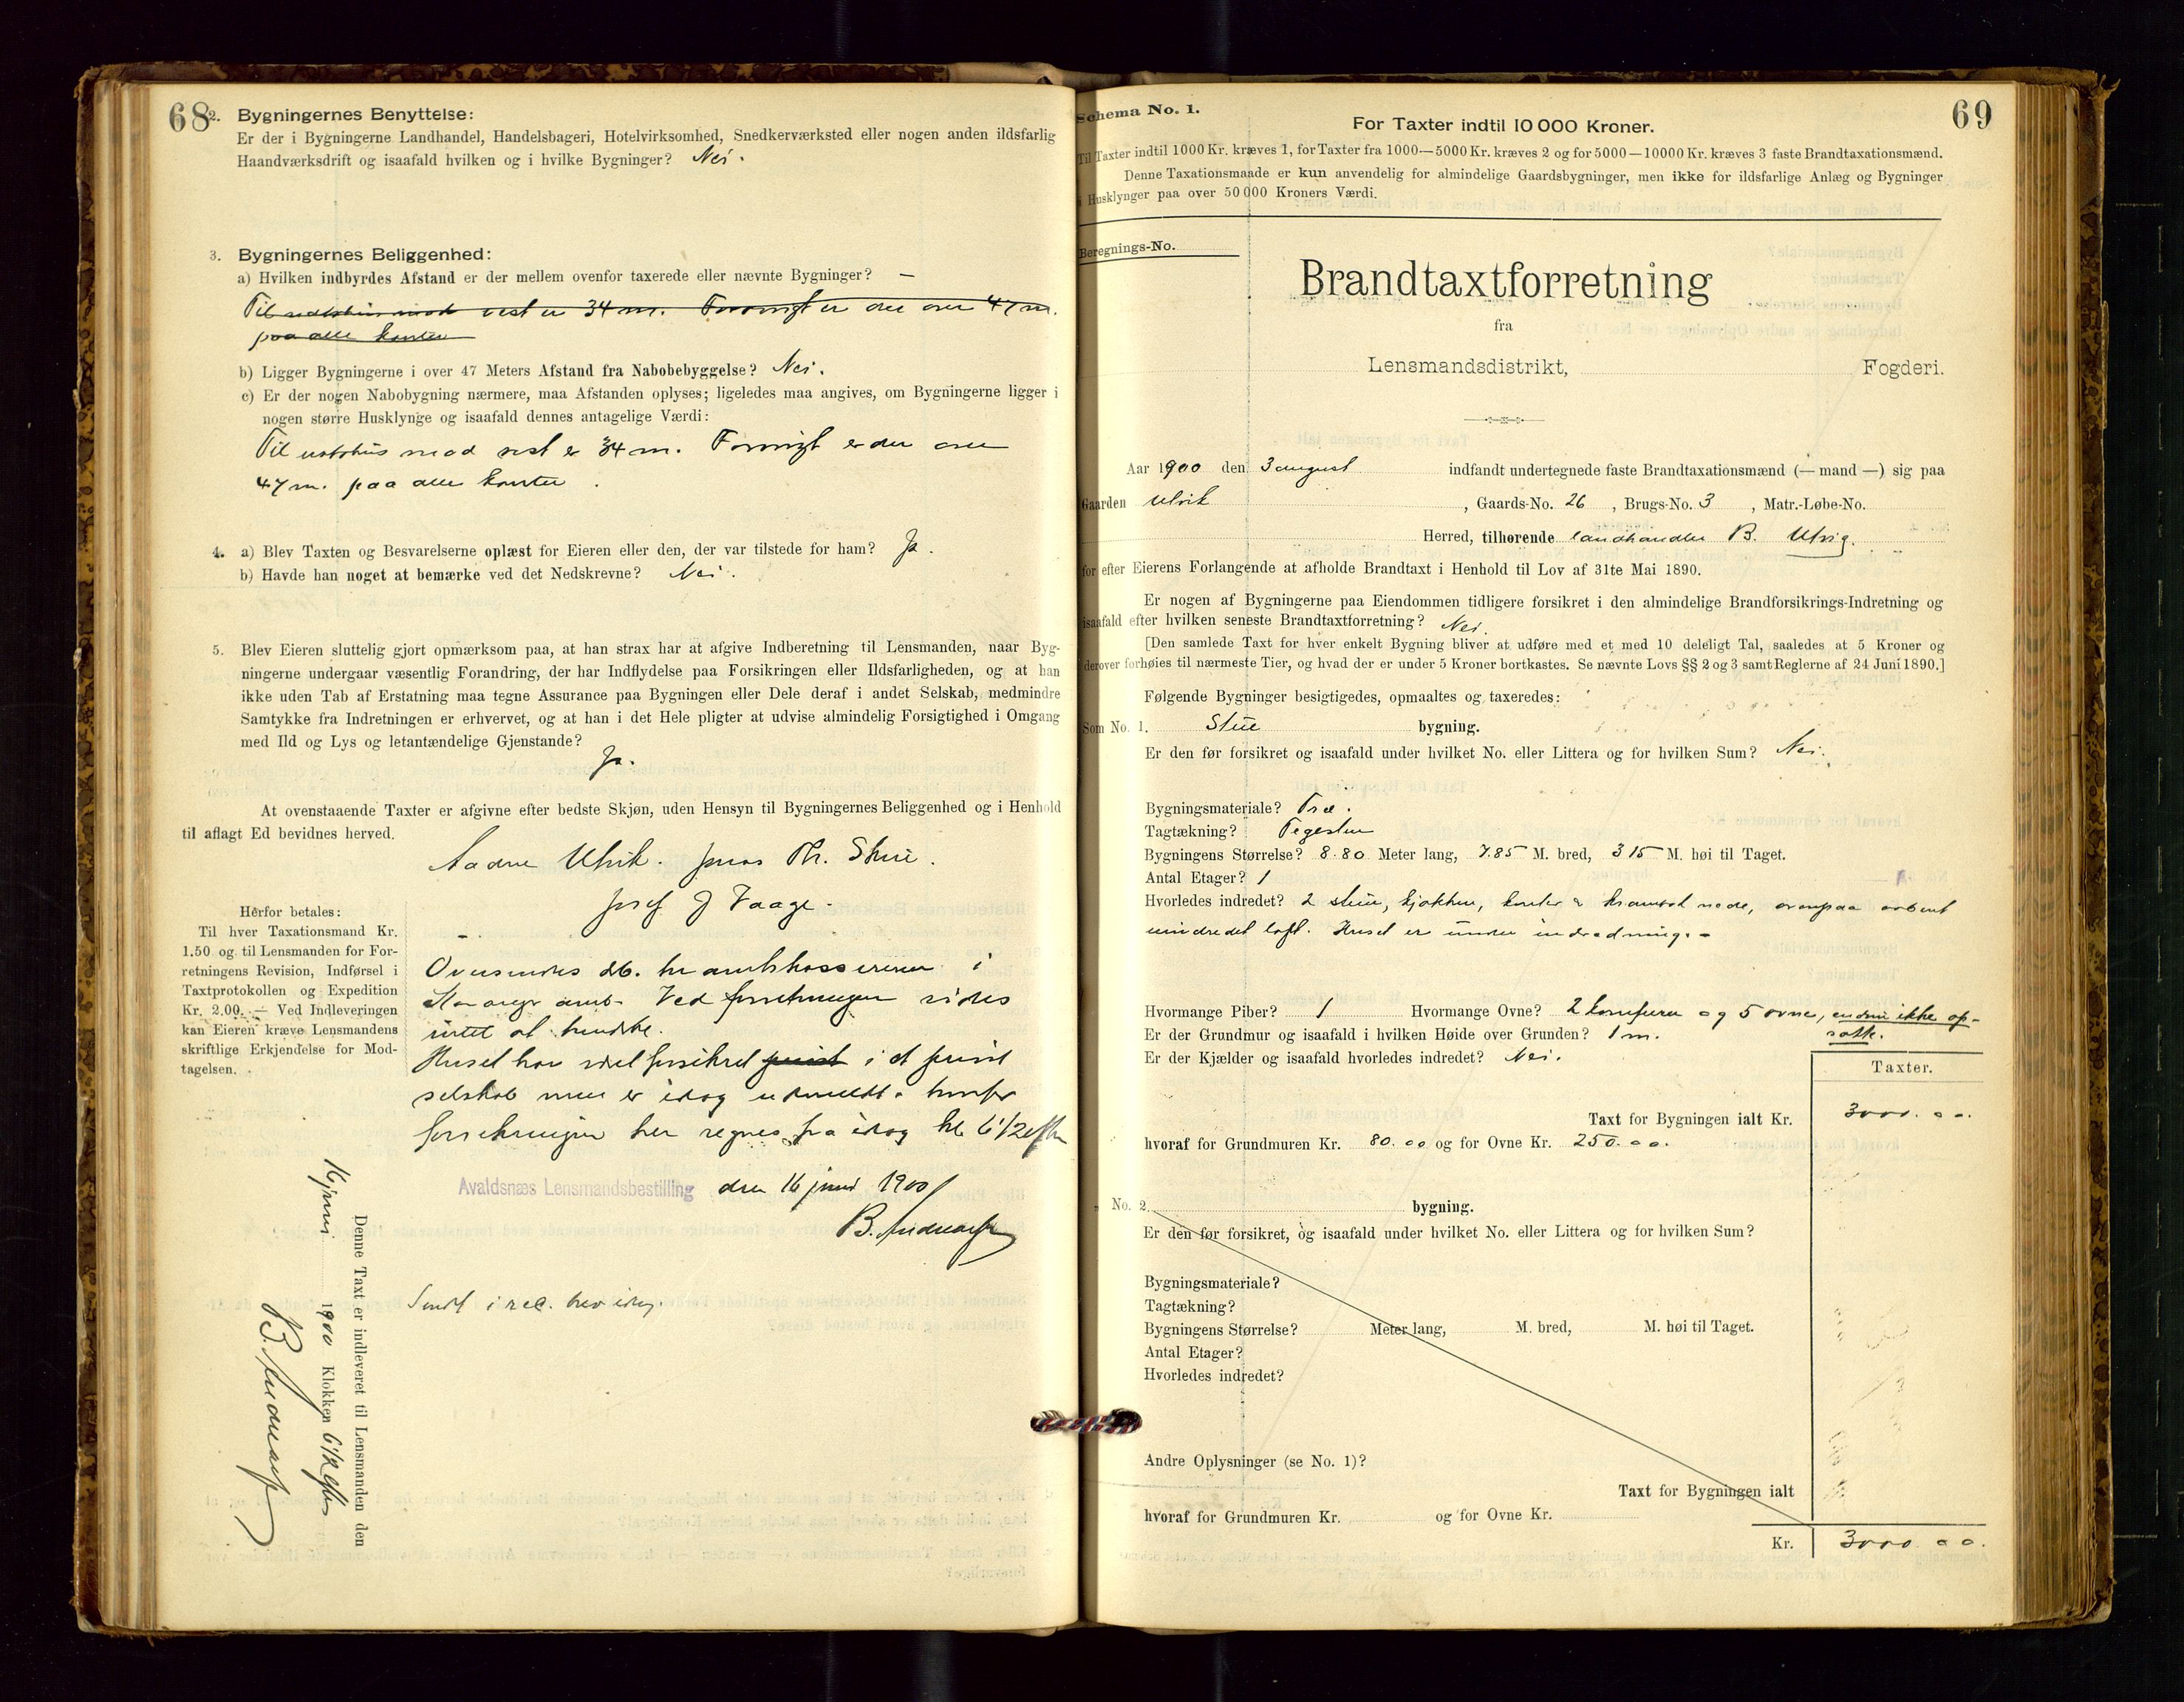 68
2. Bygningernes Benyttelse:
Er der i Bygningerne Landhandel, Handelsbageri, Hotelvirksomhed, Snedkerværksted eller nogen anden ildsfarlig
Haandværksdrift og isaafald hvilken og i hvilke Bygninger? Nei.
3. Bygningernes Beliggenhed:
a) Hvilken indbyrdes Afstand er der mellem ovenfor taxerede eller nævnte Bygninger? —
Til mod vest er 34 m. Forøvrigt er der over 47 m.
paa alle kanter
b) Ligger Bygningerne i over 47 Meters Afstand fra Nabobebyggelse? Nei.
c) Er der nogen Nabobygning nærmere, maa Afstanden oplyses; ligeledes maa angives, om Bygningerne ligger i
nogen større Husklynge og isaafald dennes antagelige Værdi:
Til mod vest er 34 m. Forøvrigt er der over
47 m. paa alle kanter.
4. a) Blev Taxten og Besvarelserne oplæst for Eieren eller den, der var tilstede for ham? Ja.
b) Havde han noget at bemærke ved det Nedskrevne? Nei.
5. Blev Eieren sluttelig gjort opmærksom paa, at han strax har at afgive Indberetning til Lensmanden, naar Byg-
ningerne undergaar væsentlig Forandring, der har Indflydelse paa Forsikringen eller Ildsfarligheden, og at han
ikke uden Tab af Erstatning maa tegne Assurance paa Bygningen eller Dele deraf i andet Selskab, medmindre
Samtykke fra Indretningen er erhvervet, og at han i det Hele pligter at udvise almindelig Forsigtighed i Omgang
med Ild og Lys og letantændelige Gjenstande?
Ja.
At ovenstaaende Taxter er afgivne efter bedste Skjøn, uden Hensyn til Bygningernes Beliggenhed og i Henhold
til aflagt Ed bevidnes herved.
Aadne Utvik. Jonas Th. Stue.
Josef J Vaage.
Herfor betales:
Til hver Taxationsmand Kr.
1.50 og til Lensmanden for For-
retningens Revision, Indførsel i
Taxtprotokollen og Expedition
Kr. 2.00. — Ved Indleveringen
kan Eieren kræve Lensmandens
skriftlige Erkjendelse for Mod-
tagelsen.
Oversendes hr amtskassereren i
Stavanger amt. Ved forretningen vides
intet at bemærke.
Huset har været forsikret privat i et privat
selskab men er idag udmeldt, hvorfor
forsikringen her regnes fra idag kl 6 1/2 eftm
Avaldsnæs Lensmandsbestilling den 16 juni 1900
B. Andreassen
Sendt i rec. brev idag.
Denne Taxt er indleveret til Lensmanden den
16 juni 1900 Klokken 6 1/2 eftm
B. Andreassen
69
Schema No. 1.
For Taxter indtil 10 000 Kroner.
Til Taxter indtil 1000 Kr. kræves 1, for Taxter fra 1000—5000 Kr. kræves 2 og for 5000—10000 Kr. kræves 3 faste Brandtaxationsmænd.
Denne Taxationsmaade er kun anvendelig for almindelige Gaardsbygninger, men ikke for ildsfarlige Anlæg og Bygninger
i Husklynger paa over 50 000 Kroners Værdi.
Beregnings-No.
Brandtaxtforretning
fra
Lensmandsdistrikt, Fogderi.
Aar 1900 den 3 august indfandt undertegnede faste Brandtaxationsmænd (— mand —) sig paa
Gaarden Utvik, Gaards-No. 26, Brugs-No. 3, Matr.-Løbe-No.
Herred, tilhørende landhandler B. Utvig.
for efter Eierens Forlangende at afholde Brandtaxt i Henhold til Lov af 31te Mai 1890.
Er nogen af Bygningerne paa Eiendommen tidligere forsikret i den almindelige Brandforsikrings-Indretning og
isaafald efter hvilken seneste Brandtaxtforretning? Nei.
[Den samlede Taxt for hver enkelt Bygning bliver at udføre med et med 10 deleligt Tal, saaledes at 5 Kroner og
derover forhøies til nærmeste Tier, og hvad der er under 5 Kroner bortkastes. Se nævnte Lovs §§ 2 og 3 samt Reglerne af 24 Juni 1890.]
Følgende Bygninger besigtigedes, opmaaltes og taxeredes:
Som No. 1. Stue bygning.
Er den før forsikret og isaafald under hvilket No. eller Littera og for hvilken Sum? Nei.
Bygningsmateriale? Træ.
Tagtækning? Teglsten
Bygningens Størrelse? 8.80 Meter lang, 7.85 M. bred, 3 15 M. høi til Taget.
Antal Etager? 1
Hvorledes indredet? 2 stuer, kjøkken, kontor & krambod nede, ovenpaa
uindredet loft. Huset er under indredning.
Hvormange Piber? 1 Hvormange Ovne? 2 komfurer og 5 ovne, endnu ikke op-
satte.
Er der Grundmur og isaafald i hvilken Høide over Grunden? 1 m.
Er der Kjælder og isaafald hvorledes indredet? Nei.
Taxter.
Taxt for Bygningen ialt Kr. 3000.00.
hvoraf for Grundmuren Kr. 80.00 og for Ovne Kr. 250.00.
" No. 2. bygning.
Er den før forsikret, og isaafald under hvilket No. eller Littera og for hvilken Sum?
Bygningsmateriale?
Tagtækning?
Bygningens Størrelse? Meter lang, M. bred, M. høi til Taget.
Antal Etager?
Hvorledes indredet?
Andre Oplysninger (se No. 1)?
Taxt for Bygningen ialt
hvoraf for Grundmuren Kr. og for Ovne Kr.
Kr. 3000 00.